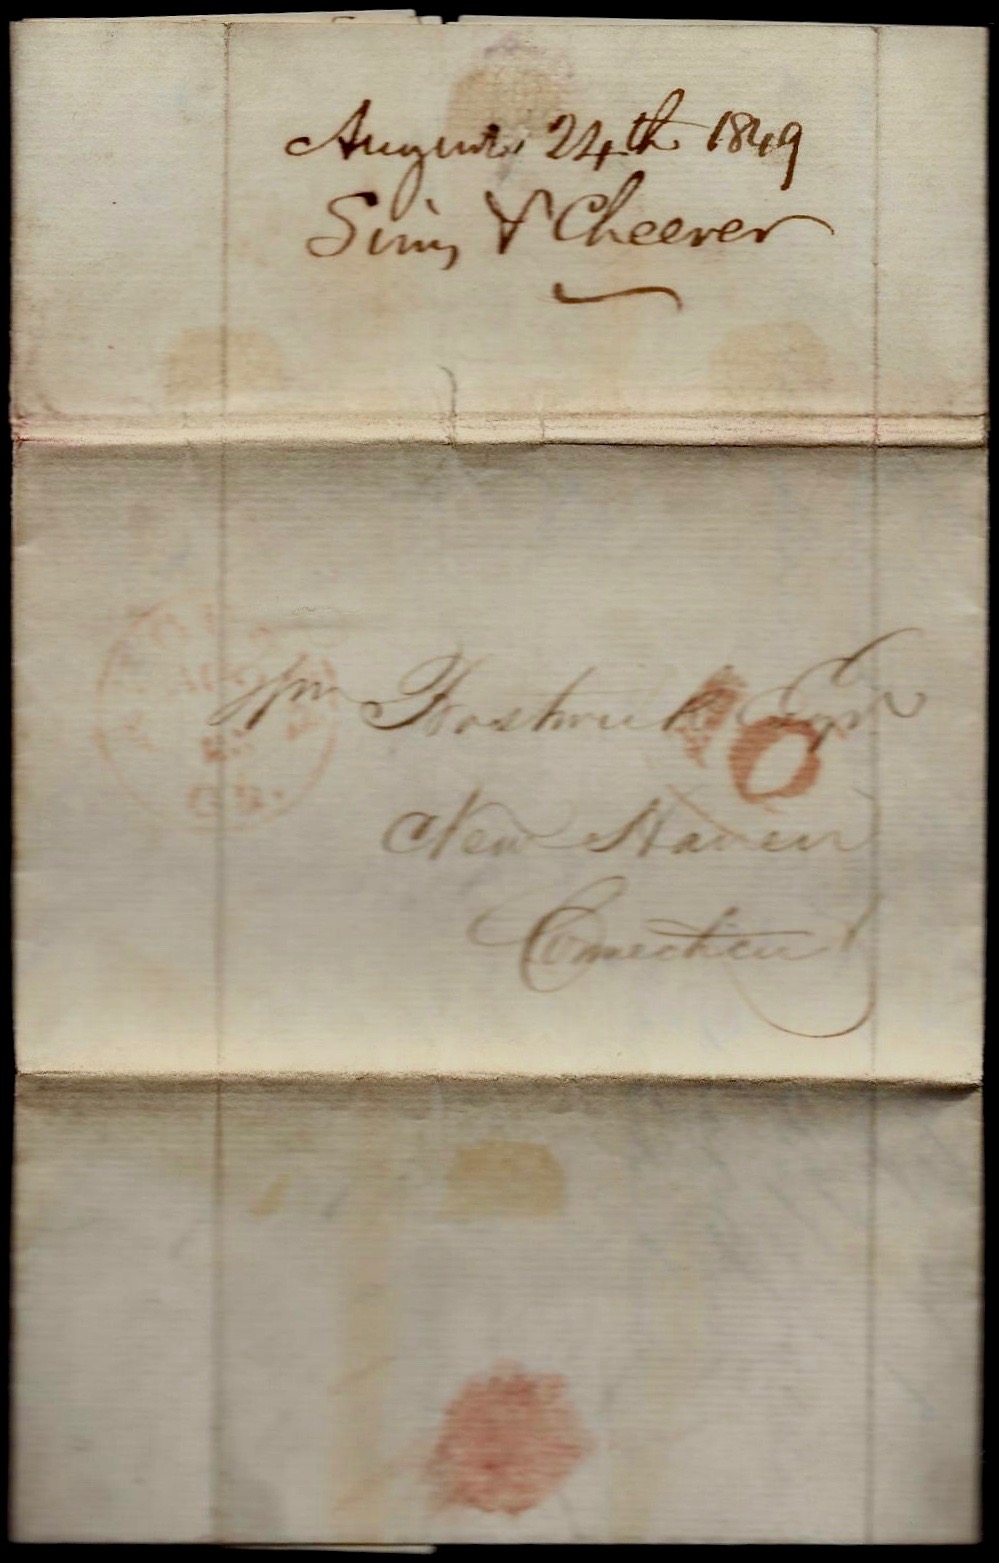 August 24th 1849
Sims & Cheever
AUG
GA.
Wm Bostwick Esqr
10
New Haven
Connecticut